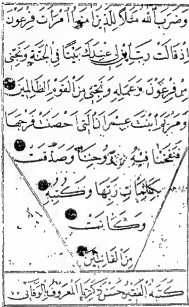 وضرب الله مثلا للذين آمنوا امرأت فرعون
إذ قالت رب ابن لي عندك بيتا في الجنة ونجني
من فرعون وعمله ونجني من القوم الظالمين
ومريم ابنت عمران التي أحصنت فرجها
فنفخنا فيه من روحنا وصدقت
بكلمات ربها وكتبه
وكانت
من القانتين
كتبه الفقير حسن المعروف